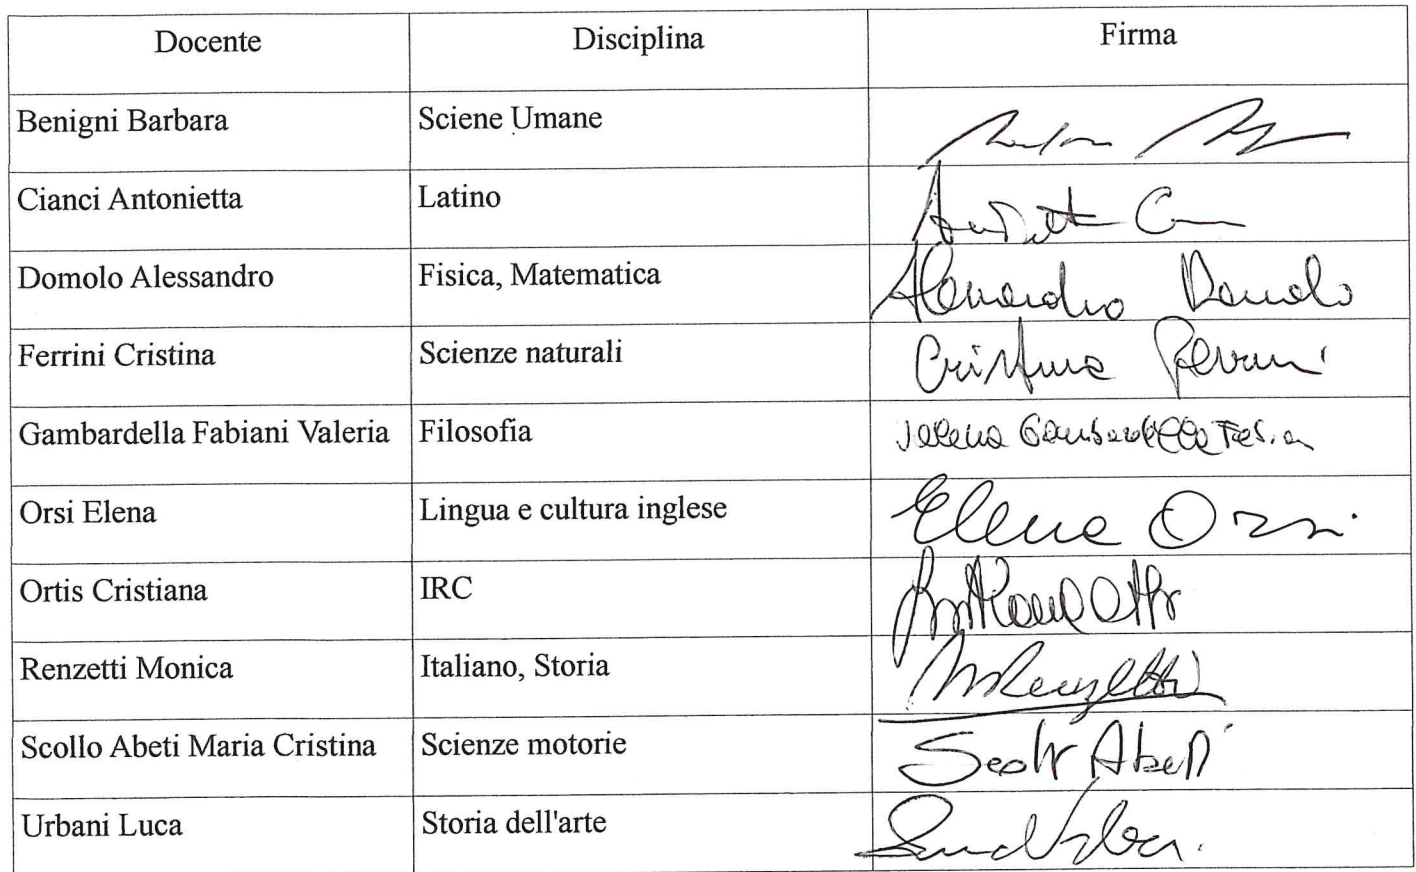 Docente Disciplina Firma
Benigni Barbara Sciene Umane
Cianci Antonietta Latino
Domolo Alessandro Fisica, Matematica Alessandro Domolo
Ferrini Cristina Scienze naturali Cristina Ferrini
Gambardella Fabiani Valeria Filosofia Valeria Gambardella Fabiani
Orsi Elena Lingua e cultura inglese Elena Orsi
Ortis Cristiana IRC
Renzetti Monica Italiano, Storia MRenzetti
Scollo Abeti Maria Cristina Scienze motorie
Urbani Luca Storia dell'arte